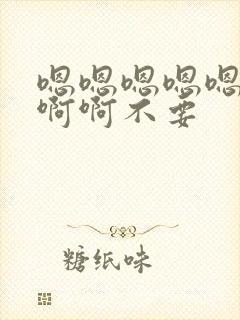 嗯嗯嗯嗯嗯
啊啊不要
糖纸味